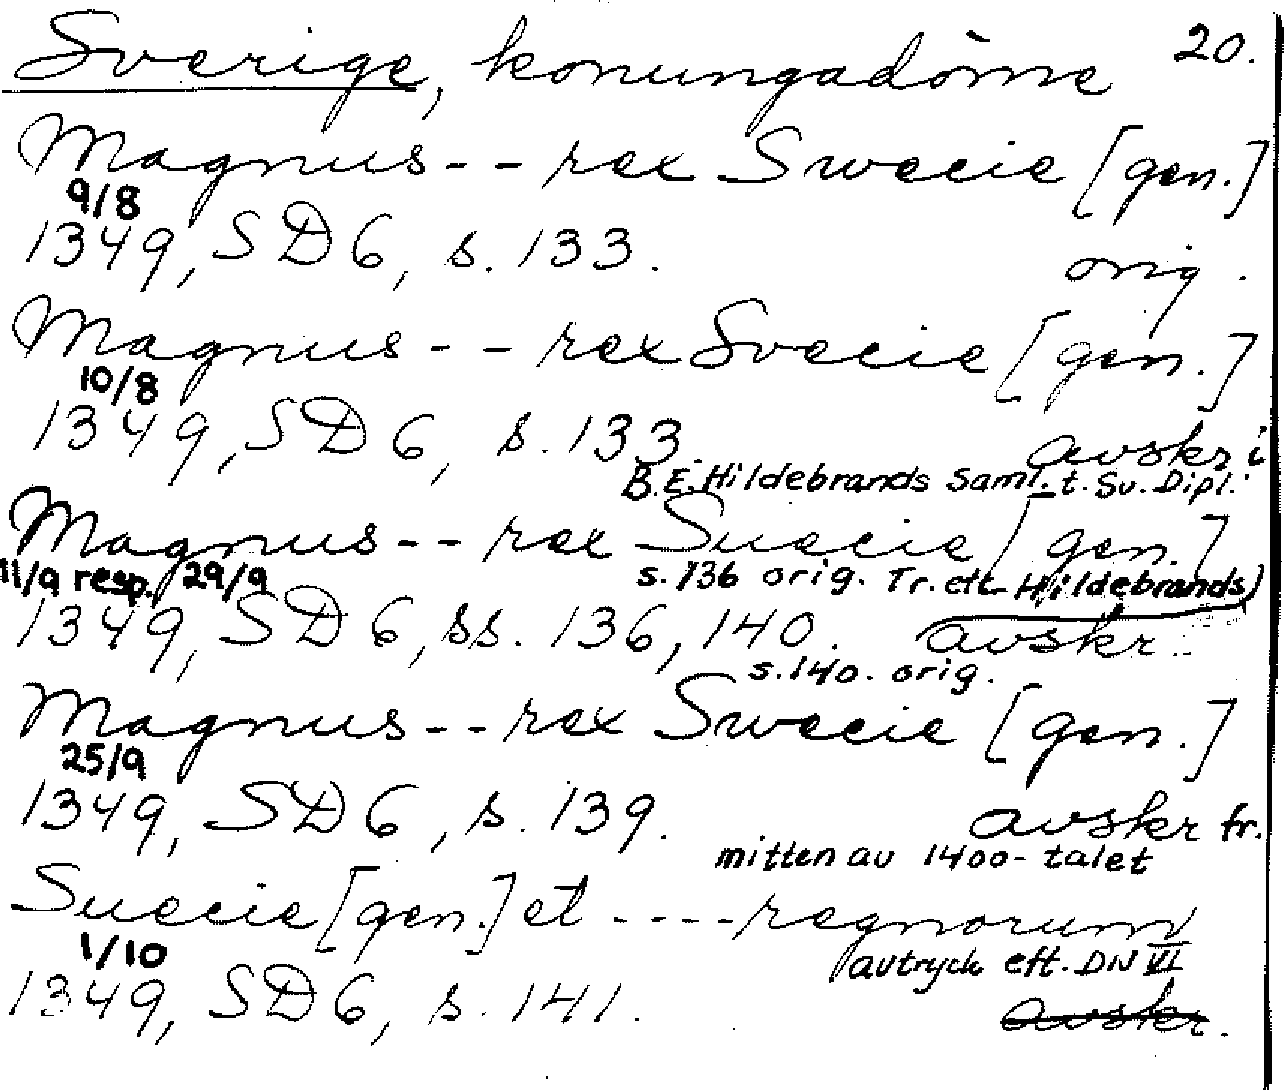 Sverige, konungadöme 20.
Magnus - - rex Swecie [gen.]
9/8
1349, SD 6, s. 133. orig.
Magnus - - rex Svecie [gen.]
10/8
1349, SD 6, s. 133. avskr i
B.E. Hildebrands Saml. t. Sv. Dipl.
Magnus - - rex Suecie [gen.]
11/9 resp. 29/9 s. 136 orig. Tr. eft. Hildebrands)
1349, SD 6, ss. 136, 140. avskr.
s. 140. orig.
Magnus - - rex Swecie [gen.]
25/9
1349, SD 6, s. 139. avskr fr.
mitten av 1400-talet
Suecie [gen.] et - - - - regnorum
1/10 avtryck eft. DN VI
1349, SD 6, s. 141. avskr.